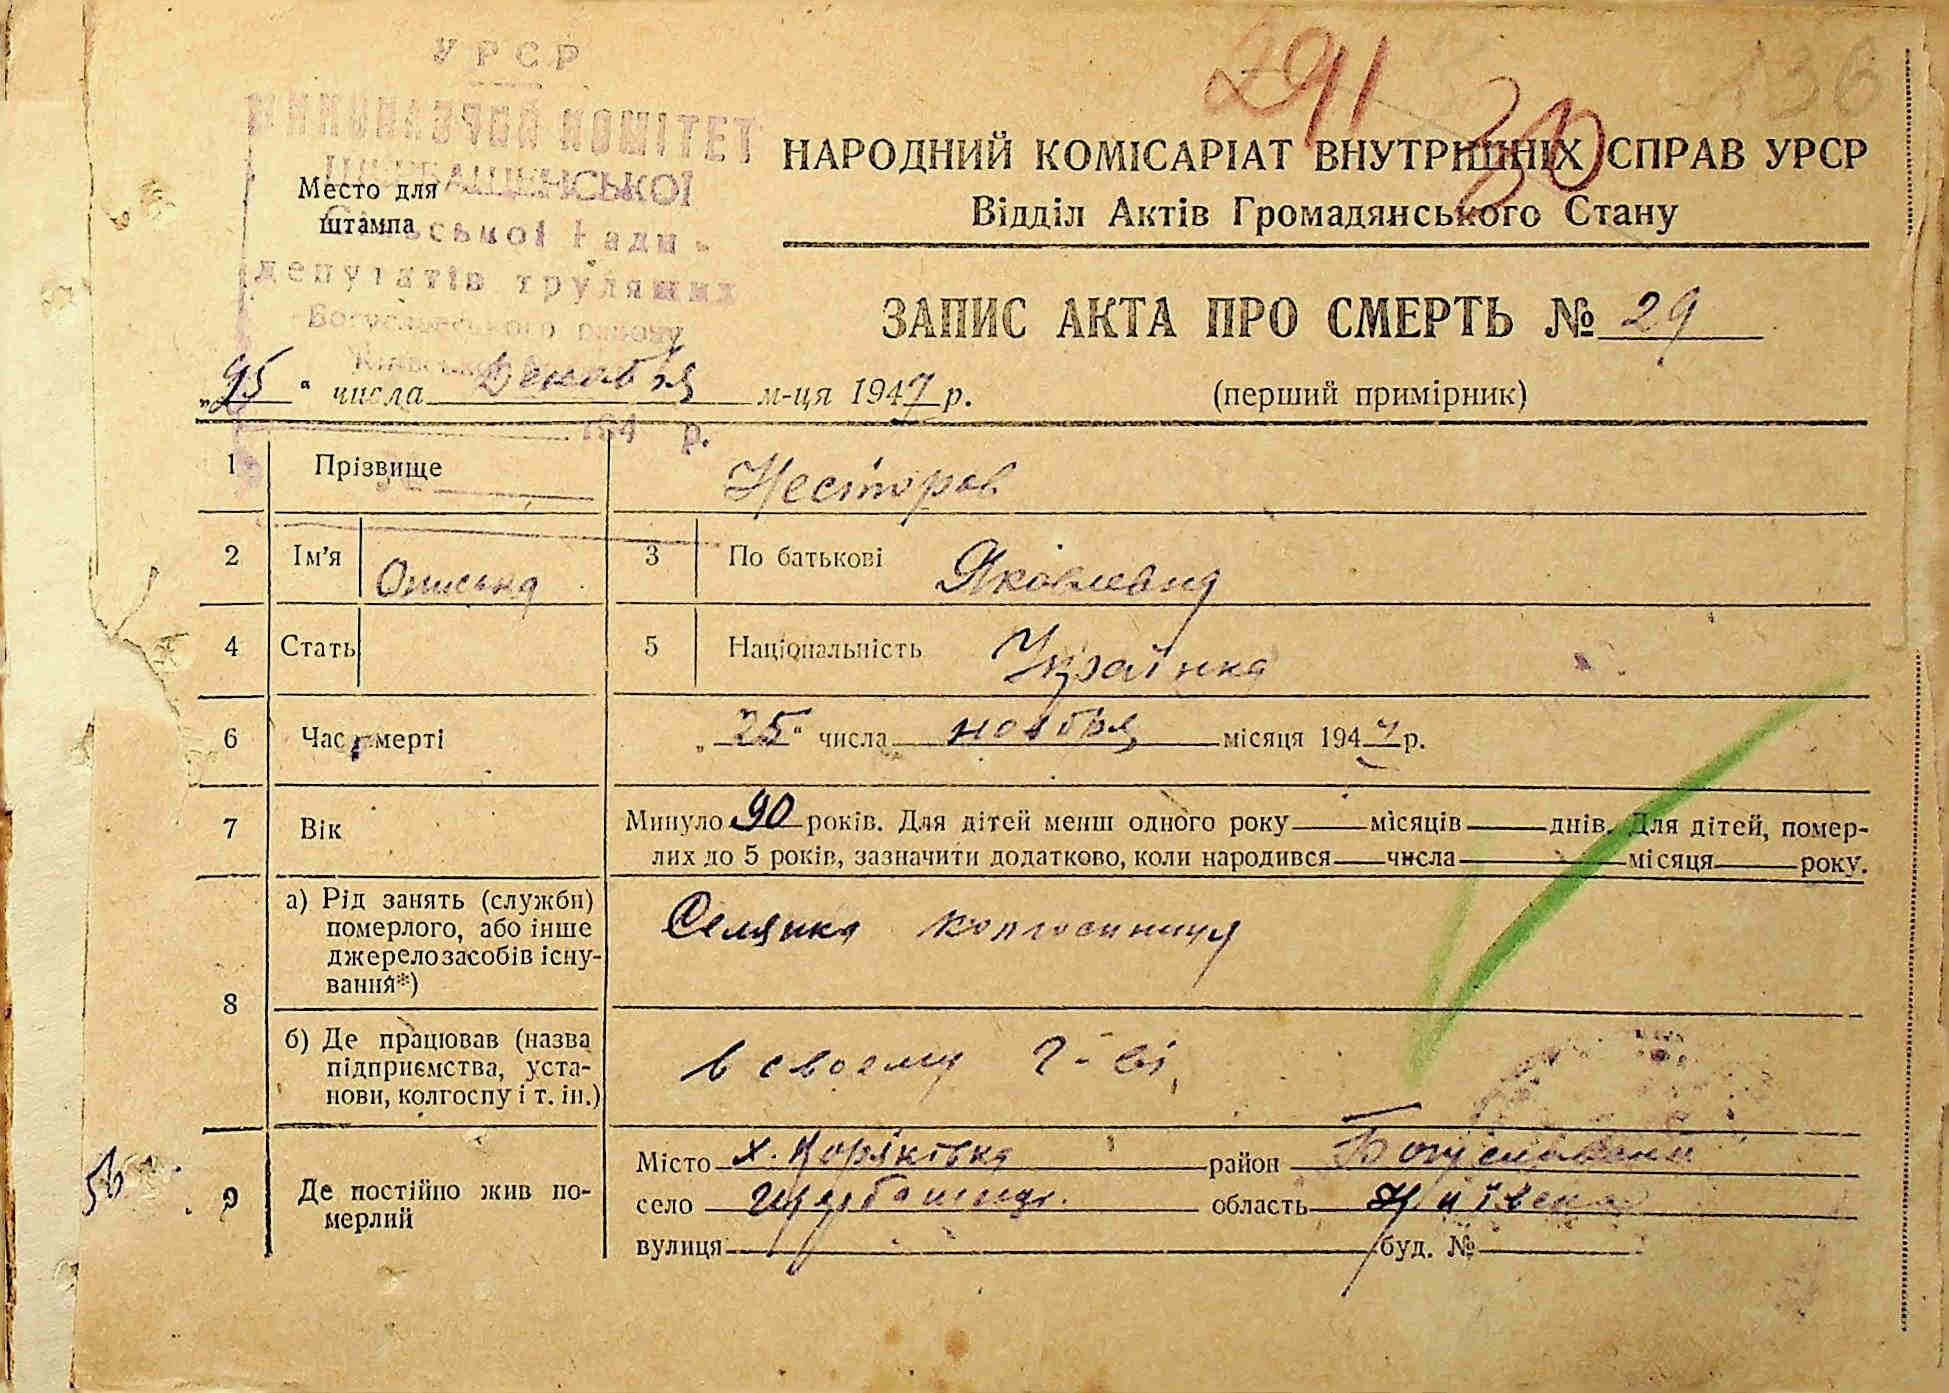 УРСР
ВИКОНАВЧИЙ КОМІТЕТ
ЩЕРБАШЕНСЬКОЇ
Сільської Ради
депутатів трудящих
Богуславського району
194 р.
291
30
136
Место для
штампа
НАРОДНИЙ КОМІСАРІАТ ВНУТРІШНІХ СПРАВ УРСР
Відділ Актів Громадянського Стану
ЗАПИС АКТА ПРО СМЕРТЬ № 29
"25" числа Декабря м-ця 1947 р.
(перший примірник)
1 Прізвище Несторов
2 Ім'я Описька 3 По батькові Яковлевна
4 Стать 5 Національність Українка
6 Час смерті "25" числа ноября місяця 1947 р.
7 Вік Минуло 90 років. Для дітей менш одного року місяців днів. Для дітей, помер-
лих до 5 років, зазначити додатково, коли народився числа місяця року.
8 а) Рід занять (служби)
померлого, або інше
джерело засобів існу-
вання*)
Селянка колгосниця
б) Де працював (назва
підприємства, уста-
нови, колгоспу і т. ін.)
в своему г-ві
9 Де постійно жив по-
мерлий
Місто х. Коряківка район Богуславський
село Щербашинці область Київська
вулиця буд. №